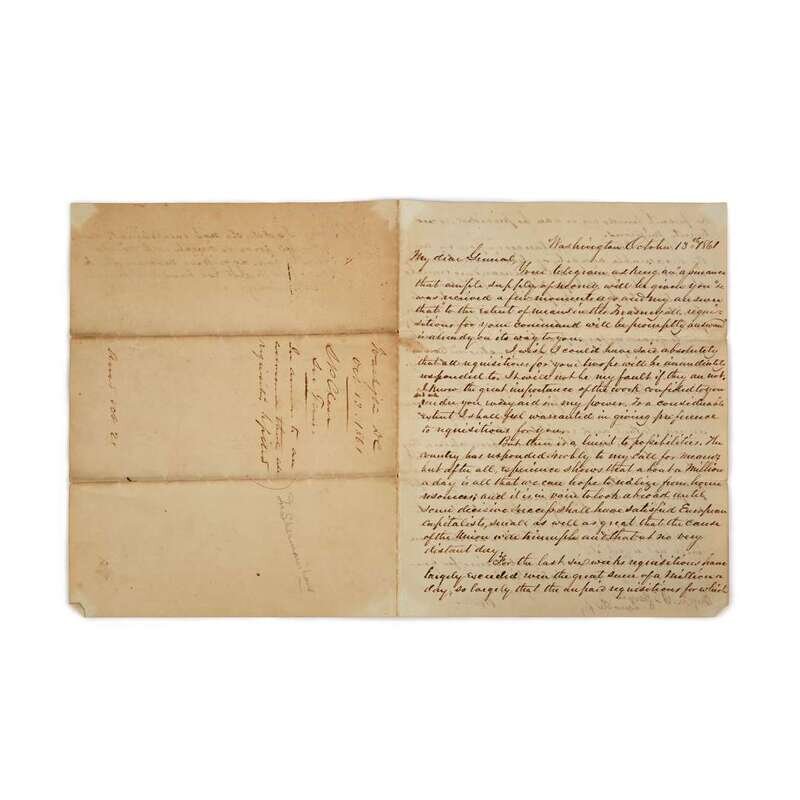 Washington October 13th 1861
My dear General,
Your telegram asking an assurance
that ample supply of money will be given you
was received a few moments ago and my answer
that to the extent of means in the Treasury all requi-
sitions for your command will be promptly answered
is already on its way to you.
I wish I could have said absolutely
that all requisitions for your troops will be immediately
responded to. It will not be my fault if they are not.
I know the great importance of the work confided to you
render you every aid in my power. To a considerable
extent I shall feel warranted in giving preference
to requisitions for you.
But there is a limit to possibilities. The
country has responded nobly to my call for means;
but after all, experience shows that about a Million
a day is all that we can hope to realize from home
resources; and it is in vain to look abroad until
some decisive success shall have satisfied European
capitalists, small as well as great that the cause
of the Union will triumph and that at no very
distant day.
For the last six weeks requisitions have
largely exceeded even the great sum of a Million a
day; so largely that the unpaid requisitions for which
Washington DC
Oct. 13. 1861
In answer to an
requisition